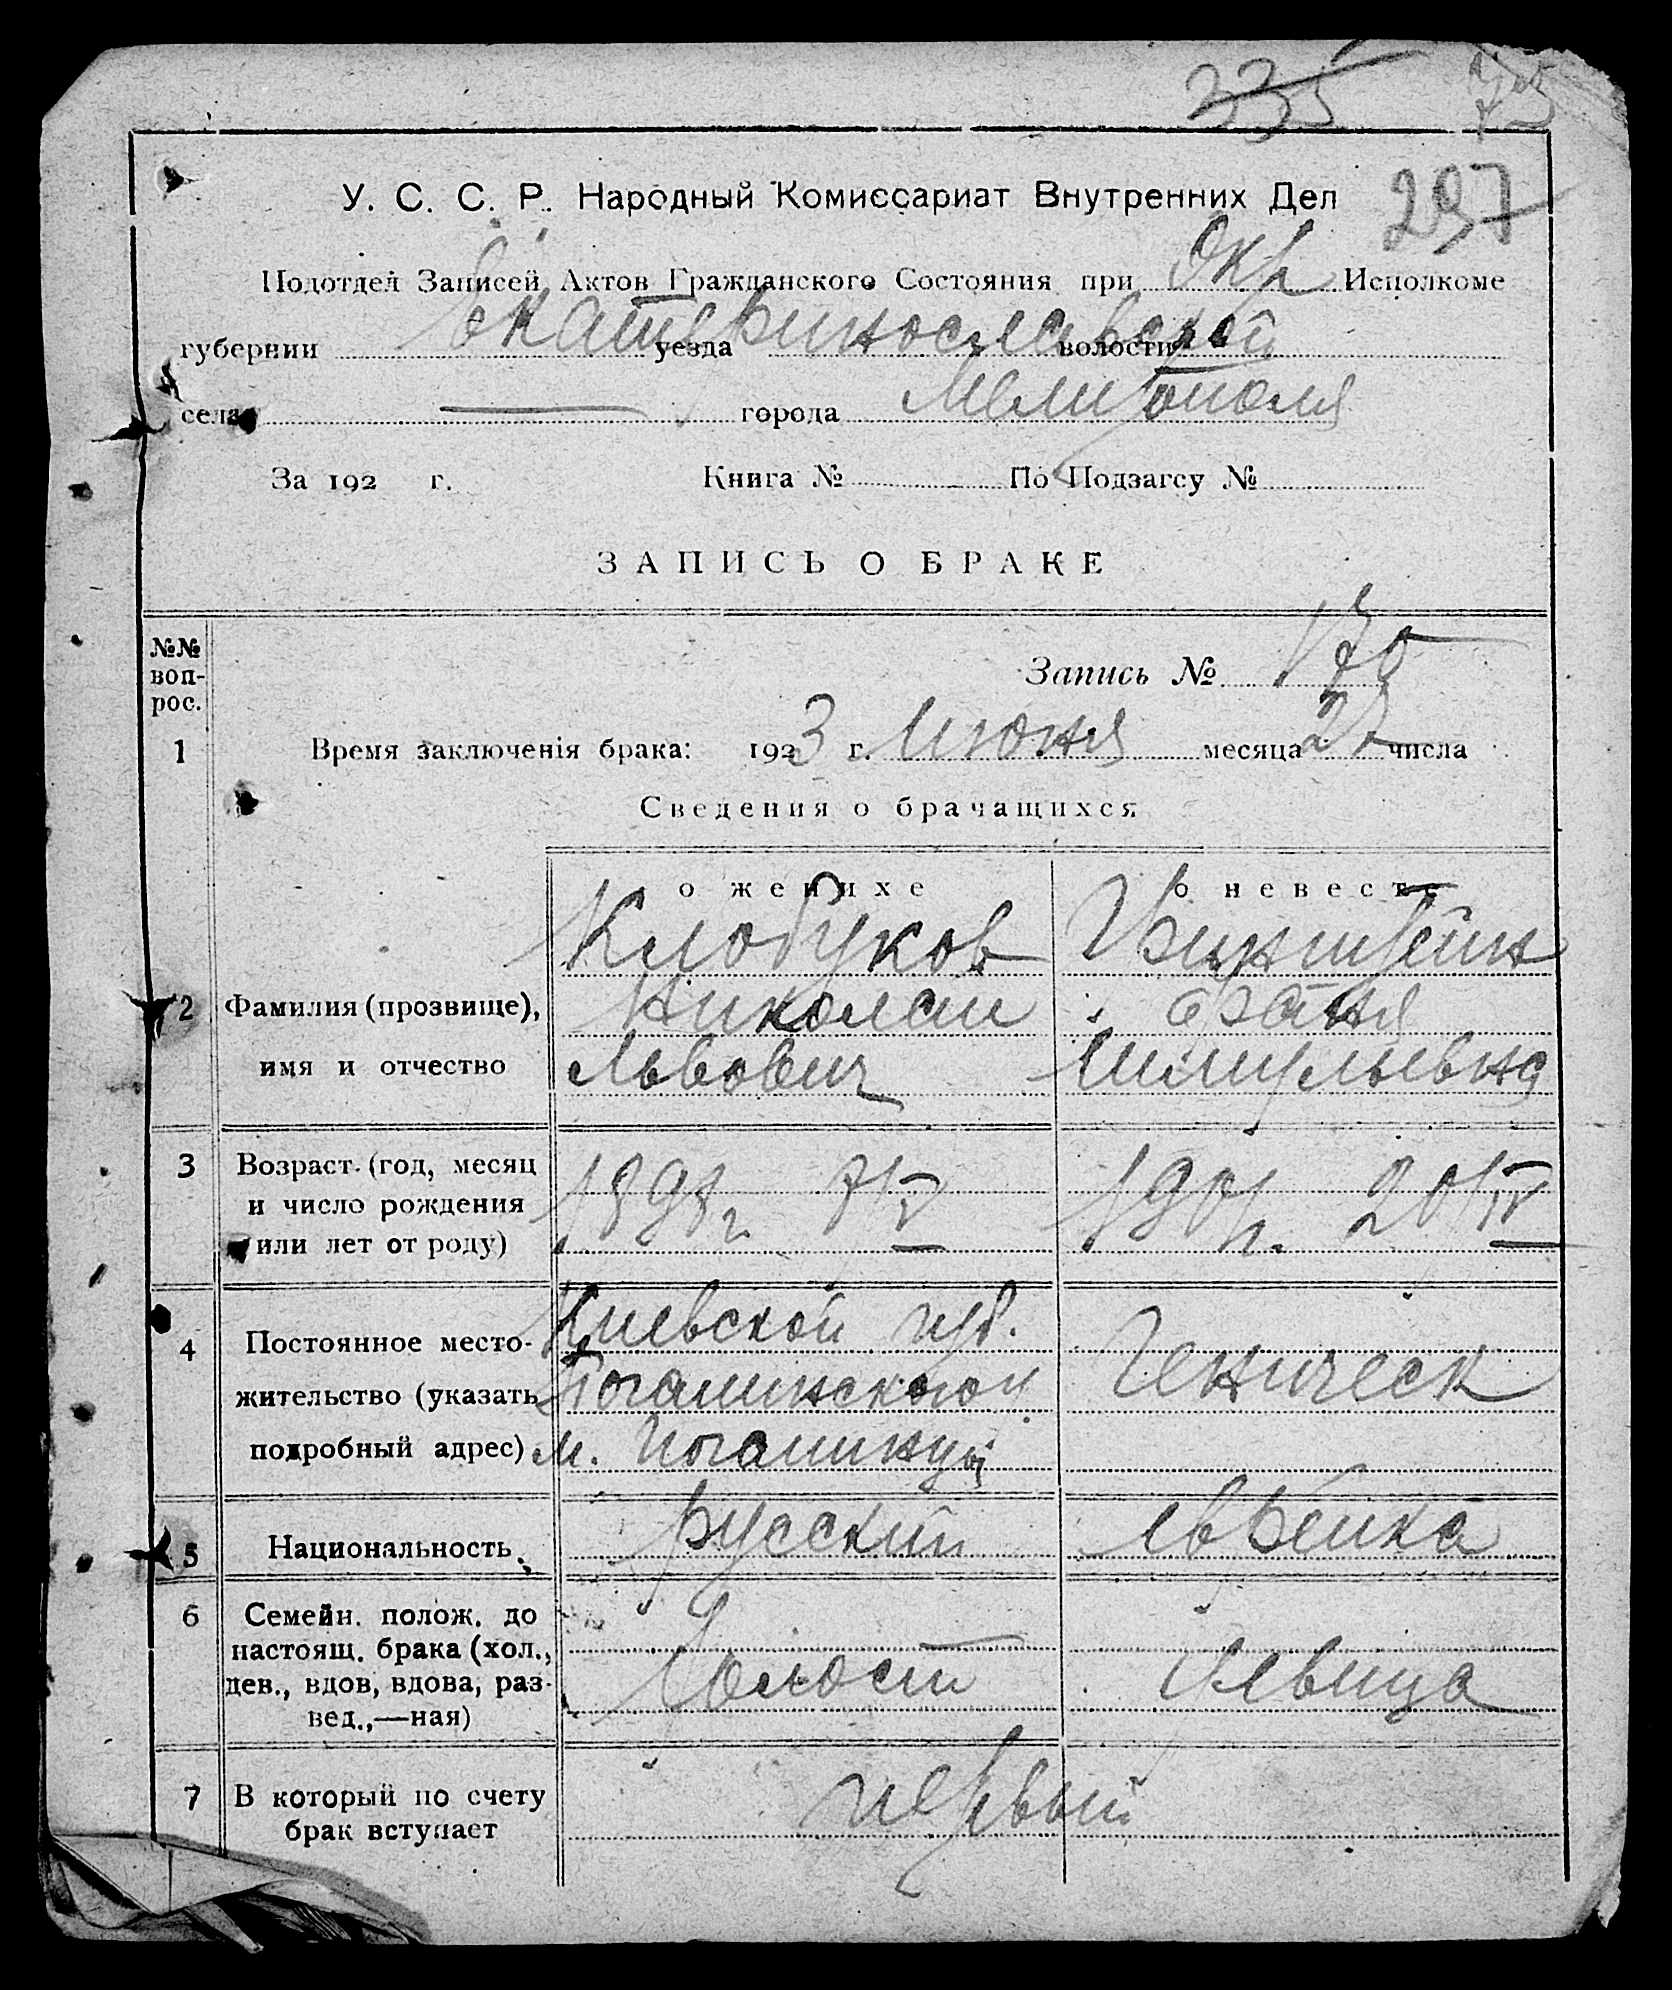 335
75
297
У. С. С. Р. Народный Комиссариат Внутренних Дел
Подотдел Записей Актов Гражданского Состояния при Окр Исполкоме
губернии Екатеринославской уезда волости
села — города Мелитополя
За 192 г. Книга № По Подзагсу №
ЗАПИСЬ О БРАКЕ
№№ воп-рос.
Запись № 175
1 Время заключенія брака: 1923 г. Июня месяца числа
Сведения о брачащихся
о женихе о невесте
Клобуков
Николай
Львович
Винштейн
Фаня
Шмульевна
2 Фамилия (прозвище),
имя и отчество
3 Возраст (год, месяц
и число рождения
или лет от роду)
1898 г. 7/V
1901 г. 20/IV
4 Постоянное место-
жительство (указать
подробный адрес)
Киевской губ.
м.
Геническ
5 Национальность
русский
еврейка
6 Семейн. полож. до
настоящ. брака (хол.,
дев., вдов, вдова, раз-
вед.,—ная)
Холост
девица
7 В который по счету
брак вступает
первый